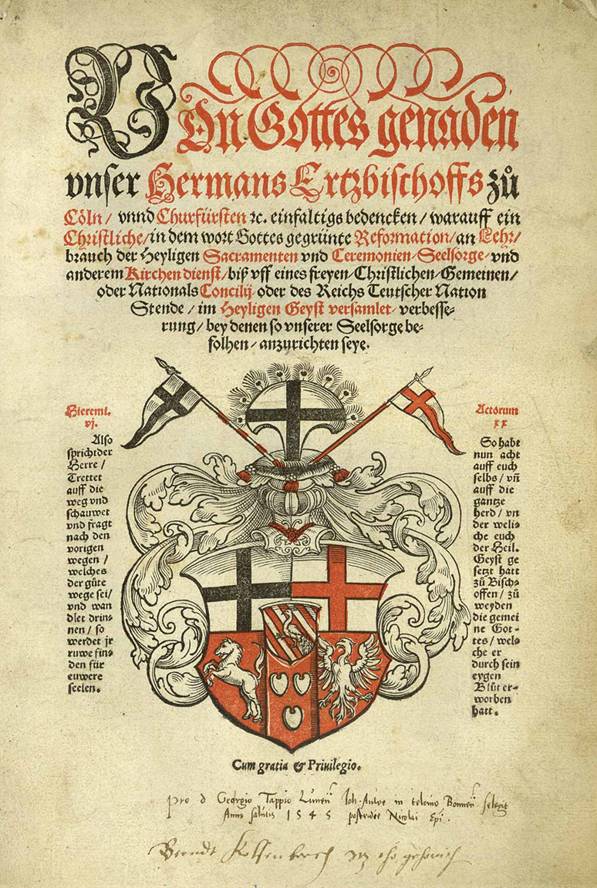 VOn Gottes genaden
vnser Hermans Ertzbischoffs zů
Cöln/ vnnd Churfürsten ꝛc. einfaltigs bedencken/ warauff ein
Christliche/ in dem wort Gottes gegrünte Reformation/ an Lehr/
brauch der Heyligen Sacramenten vnd Ceremonien/ Seelsorge/ vnd
anderem Kirchen dienst/ biß vff eines freyen Christlichen Gemeinen/
oder Nationals Concilij oder des Reichs Teutscher Nation
Stende/ im Heyligen Geyst versamlet/ verbesse-
rung/ bey denen so vnserer Seelsorge be-
folhen/ anzurichten seye.
Hieremi.
vj.
Also
sprichtder
Herre/
Trettet
auff die
weg vnd
schauwet
vnd fragt
nach den
vorigen
wegen/
welches
der güte
wege sei/
vnd wan
dlet drin-
nen/ so
werdet jr
ruwe fin-
den für
euwere
seelen.
Actorum
xx
So habt
nun acht
auff euch
selbs/ vñ
auff die
gantze
herd/ vn
der wel-
che euch
der Heil.
Geyst ge
setzt hatt
zů Bisch-
offen/ zů
weyden
die gemei
ne Got-
tes/ wel-
che er
durch sein
eygen
Blůt er-
worben
hatt.
Cum gratia & Priuilegio.
pro d Georgio Tappio
Anno salutis 1545 Nicolai Epi.